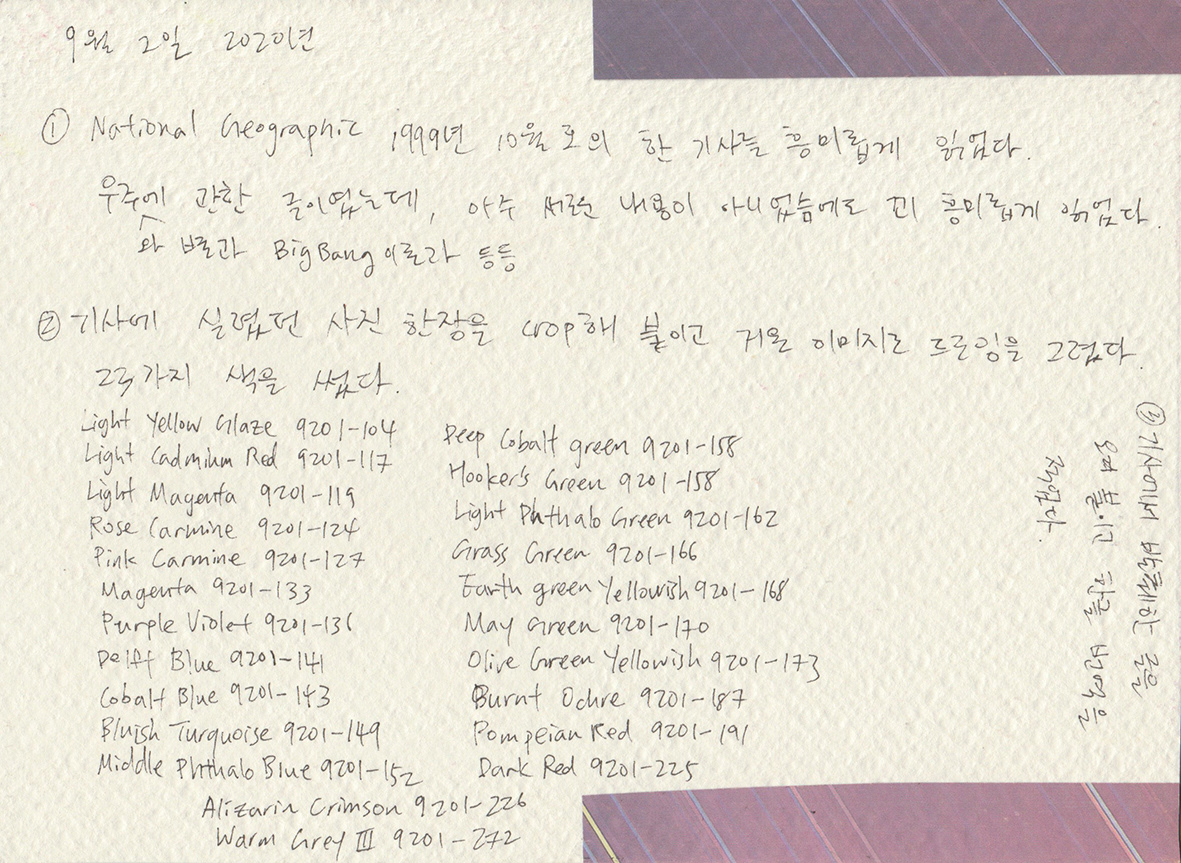 9월 2일 2020년
① National Geographic 1999년 10월호의 한 기사를 흥미롭게 읽었다.
우주에 관한 글이었는데, 아주 새로운 내용이 아니었음에도 꾀 흥미롭게 읽었다.
와 별과 Big Bang 이론과 등등
② 기사에 실렸던 사진 한장을 crop해 붙이고 거울 이미지로 드로잉을 그렸다.
23가지 색을 썼다.
Light Yellow Glaze 9201-104
Light Cadmium Red 9201-117
Light Magenta 9201-119
Rose Carmine 9201-124
Pink Carmine 9201-127
Magenta 9201-133
Purple Violet 9201-136
Delft Blue 9201-141
Cobalt Blue 9201-143
Bluish Turquoise 9201-149
Middle Phthalo Blue 9201-152
Deep Cobalt green 9201-158
Hooker's Green 9201-158
Light Phthalo Green 9201-162
Grass Green 9201-166
Earth green Yellowish 9201-168
May Green 9201-170
Olive Green Yellowish 9201-173
Burnt Ochre 9201-187
Pompeian Red 9201-191
Dark Red 9201-225
Alizarin Crimson 9201-226
Warm Grey III 9201-272
③ 기사에서 발췌한 글을
붙이고 한글 번역을
적었다.